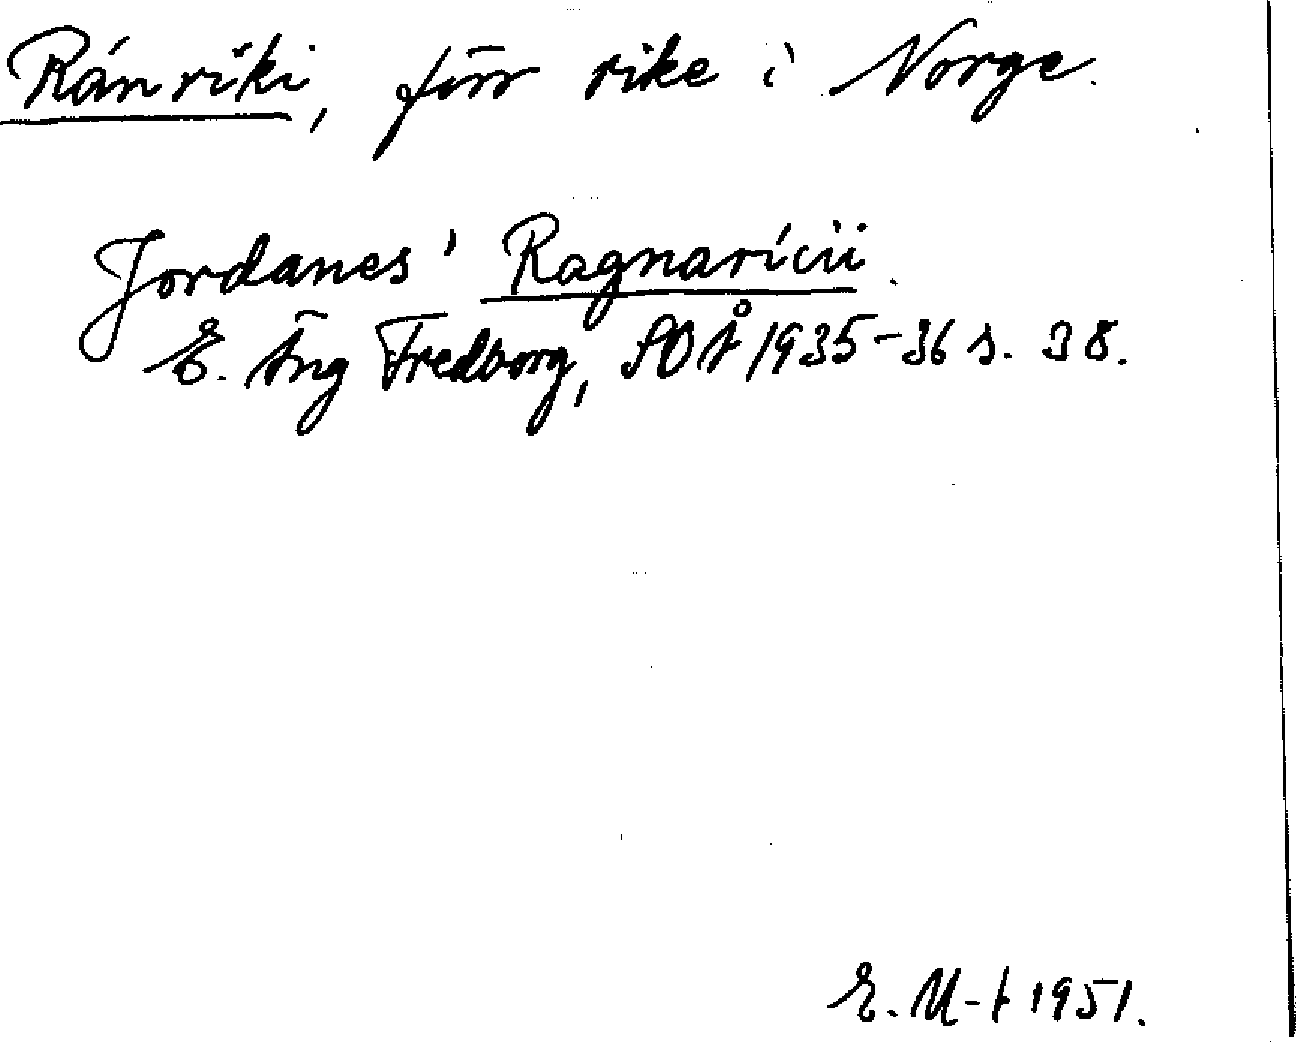 Ránríki, förr rike i Norge.
Jordanes' Ragnarícii.
E. Äng Fredborg, SOÅ 1935-36 s. 38.
E. M-t 1951.